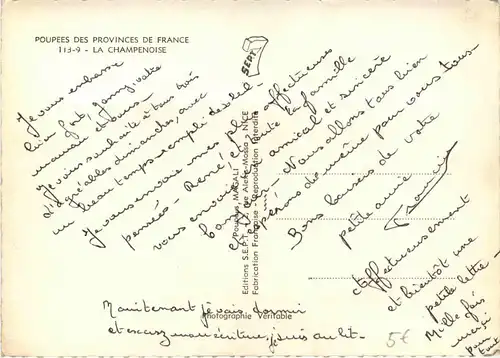 POUPEES DES PROVINCES DE FRANCE
113-9 - LA CHAMPENOISE
SEPT
Je vous embrasse
bien fort, Janny, votre
maman et tous -
Je vous souhaite à tous très
d'agréables dimanches, avec
un beau temps rempli de soleil -
Je vous envoie mes plus affectueuses
pensées - René, et toute la famille
vous envoie amical et sincère
- Nous allons tous bien
pensons de même pour vous tous -
Bons baisers de votre
petite amie
Affectueusement
et bientôt une
petite lettre -
Mille fois
merci
pour tout
Maintenant je vais dormir
et excusez mon écriture, je suis au lit -
Poupées MAGALI
Editions S.E.P.T. - NICE
Fabrication Française - Reproduction Interdite
Photographie Véritable
5€